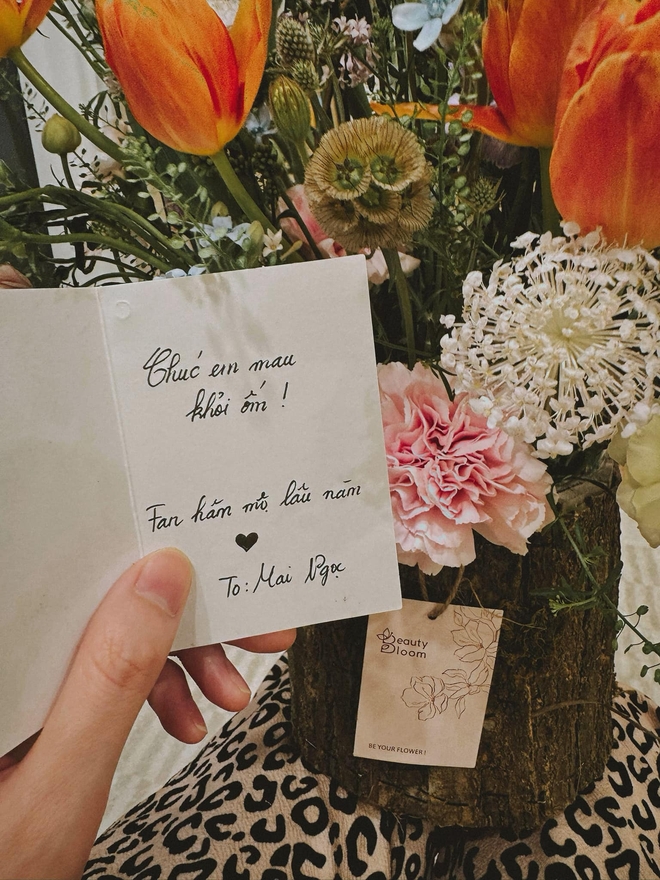 Chúc em mau
khỏi ốm !
Fan hâm mộ lâu năm
♥
To: Mai Ngọc
Beauty
Bloom
BE YOUR FLOWER !